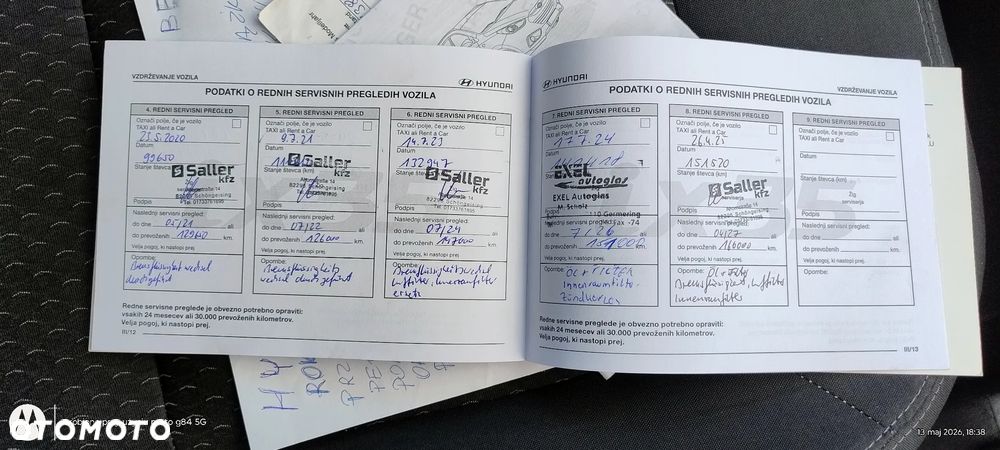 VZDRŽEVANJE VOZILA
HYUNDAI
PODATKI O REDNIH SERVISNIH PREGLEDIH VOZILA
4. REDNI SERVISNI PREGLED
Označi polje, če je vozilo
TAXI ali Rent a Car
25.5.2020
Datum
99650
Stanje števca (km)
Saller
kfz
Podpis
Naslednji servisni pregled:
do dne 05/21 ali
do prevoženih km.
Velja pogoj, ki nastopi prej.
Opombe:
Bremsflüssigkeit wechsel
durchgeführt
5. REDNI SERVISNI PREGLED
Označi polje, če je vozilo
TAXI ali Rent a Car
9.7.21
Datum
Stanje števca (km)
Saller
kfz
82296 Schöngeising
Podpis
Naslednji servisni pregled:
do dne 07/22 ali
do prevoženih 126000 km.
Velja pogoj, ki nastopi prej.
Opombe:
Bremsflüssigkeits
wechsel durchgeführt
6. REDNI SERVISNI PREGLED
Označi polje, če je vozilo
TAXI ali Rent a Car
14.7.23
Datum
132947
Stanje števca
Saller
kfz
82296 Schöngeising
Tel. 01733761695
Podpis
Naslednji servisni pregled:
do dne 07/24 ali
do prevoženih 147000 km.
Velja pogoj, ki nastopi prej.
Opombe:
Bremsflüssigkeitwechsel
Luftfilter, Innenraumfilter
ersetzt
Redne servisne preglede je obvezno potrebno opraviti:
vsakih 24 mesecev ali 30.000 prevoženih kilometrov.
Velja pogoj, ki nastopi prej.
III/12
HYUNDAI
VZDRŽEVANJE VOZILA
PODATKI O REDNIH SERVISNIH PREGLEDIH VOZILA
7. REDNI SERVISNI PREGLED
Označi polje, če je vozilo
TAXI ali Rent a Car
17.7.24
Datum
EXEL
autoglas
EXEL Autoglas
M. Scholz
Podpis
110 Germering
Fax -74
Naslednji servisni pregled:
do dne 7/26 ali
do prevoženih km.
Velja pogoj, ki nastopi prej.
Opombe:
ÖL + FILTER
Innenraumfilter
Zündkerzen
8. REDNI SERVISNI PREGLED
Označi polje, če je vozilo
TAXI ali Rent a Car
26.4.25
Datum
151520
Stanje števca (km)
Saller
kfz
Podpis
Naslednji servisni pregled:
do dne 04/27 ali
do prevoženih 160000 km.
Velja pogoj, ki nastopi prej.
Opombe:
Öl + Filter
Bremsflüssigkeit, Luftfilter
Innenraumfilter
9. REDNI SERVISNI PREGLED
Označi polje, če je vozilo
TAXI ali Rent a Car
Datum
Stanje števca (km)
Žig
servisa
Podpis
Naslednji servisni pregled:
do dne ali
do prevoženih km.
Velja pogoj, ki nastopi prej.
Opombe:
Redne servisne preglede je obvezno potrebno opraviti:
vsakih 24 mesecev ali 30.000 prevoženih kilometrov.
Velja pogoj, ki nastopi prej.
III/13
OTOMOTO
g84 5G
13 maj 2026, 18:38